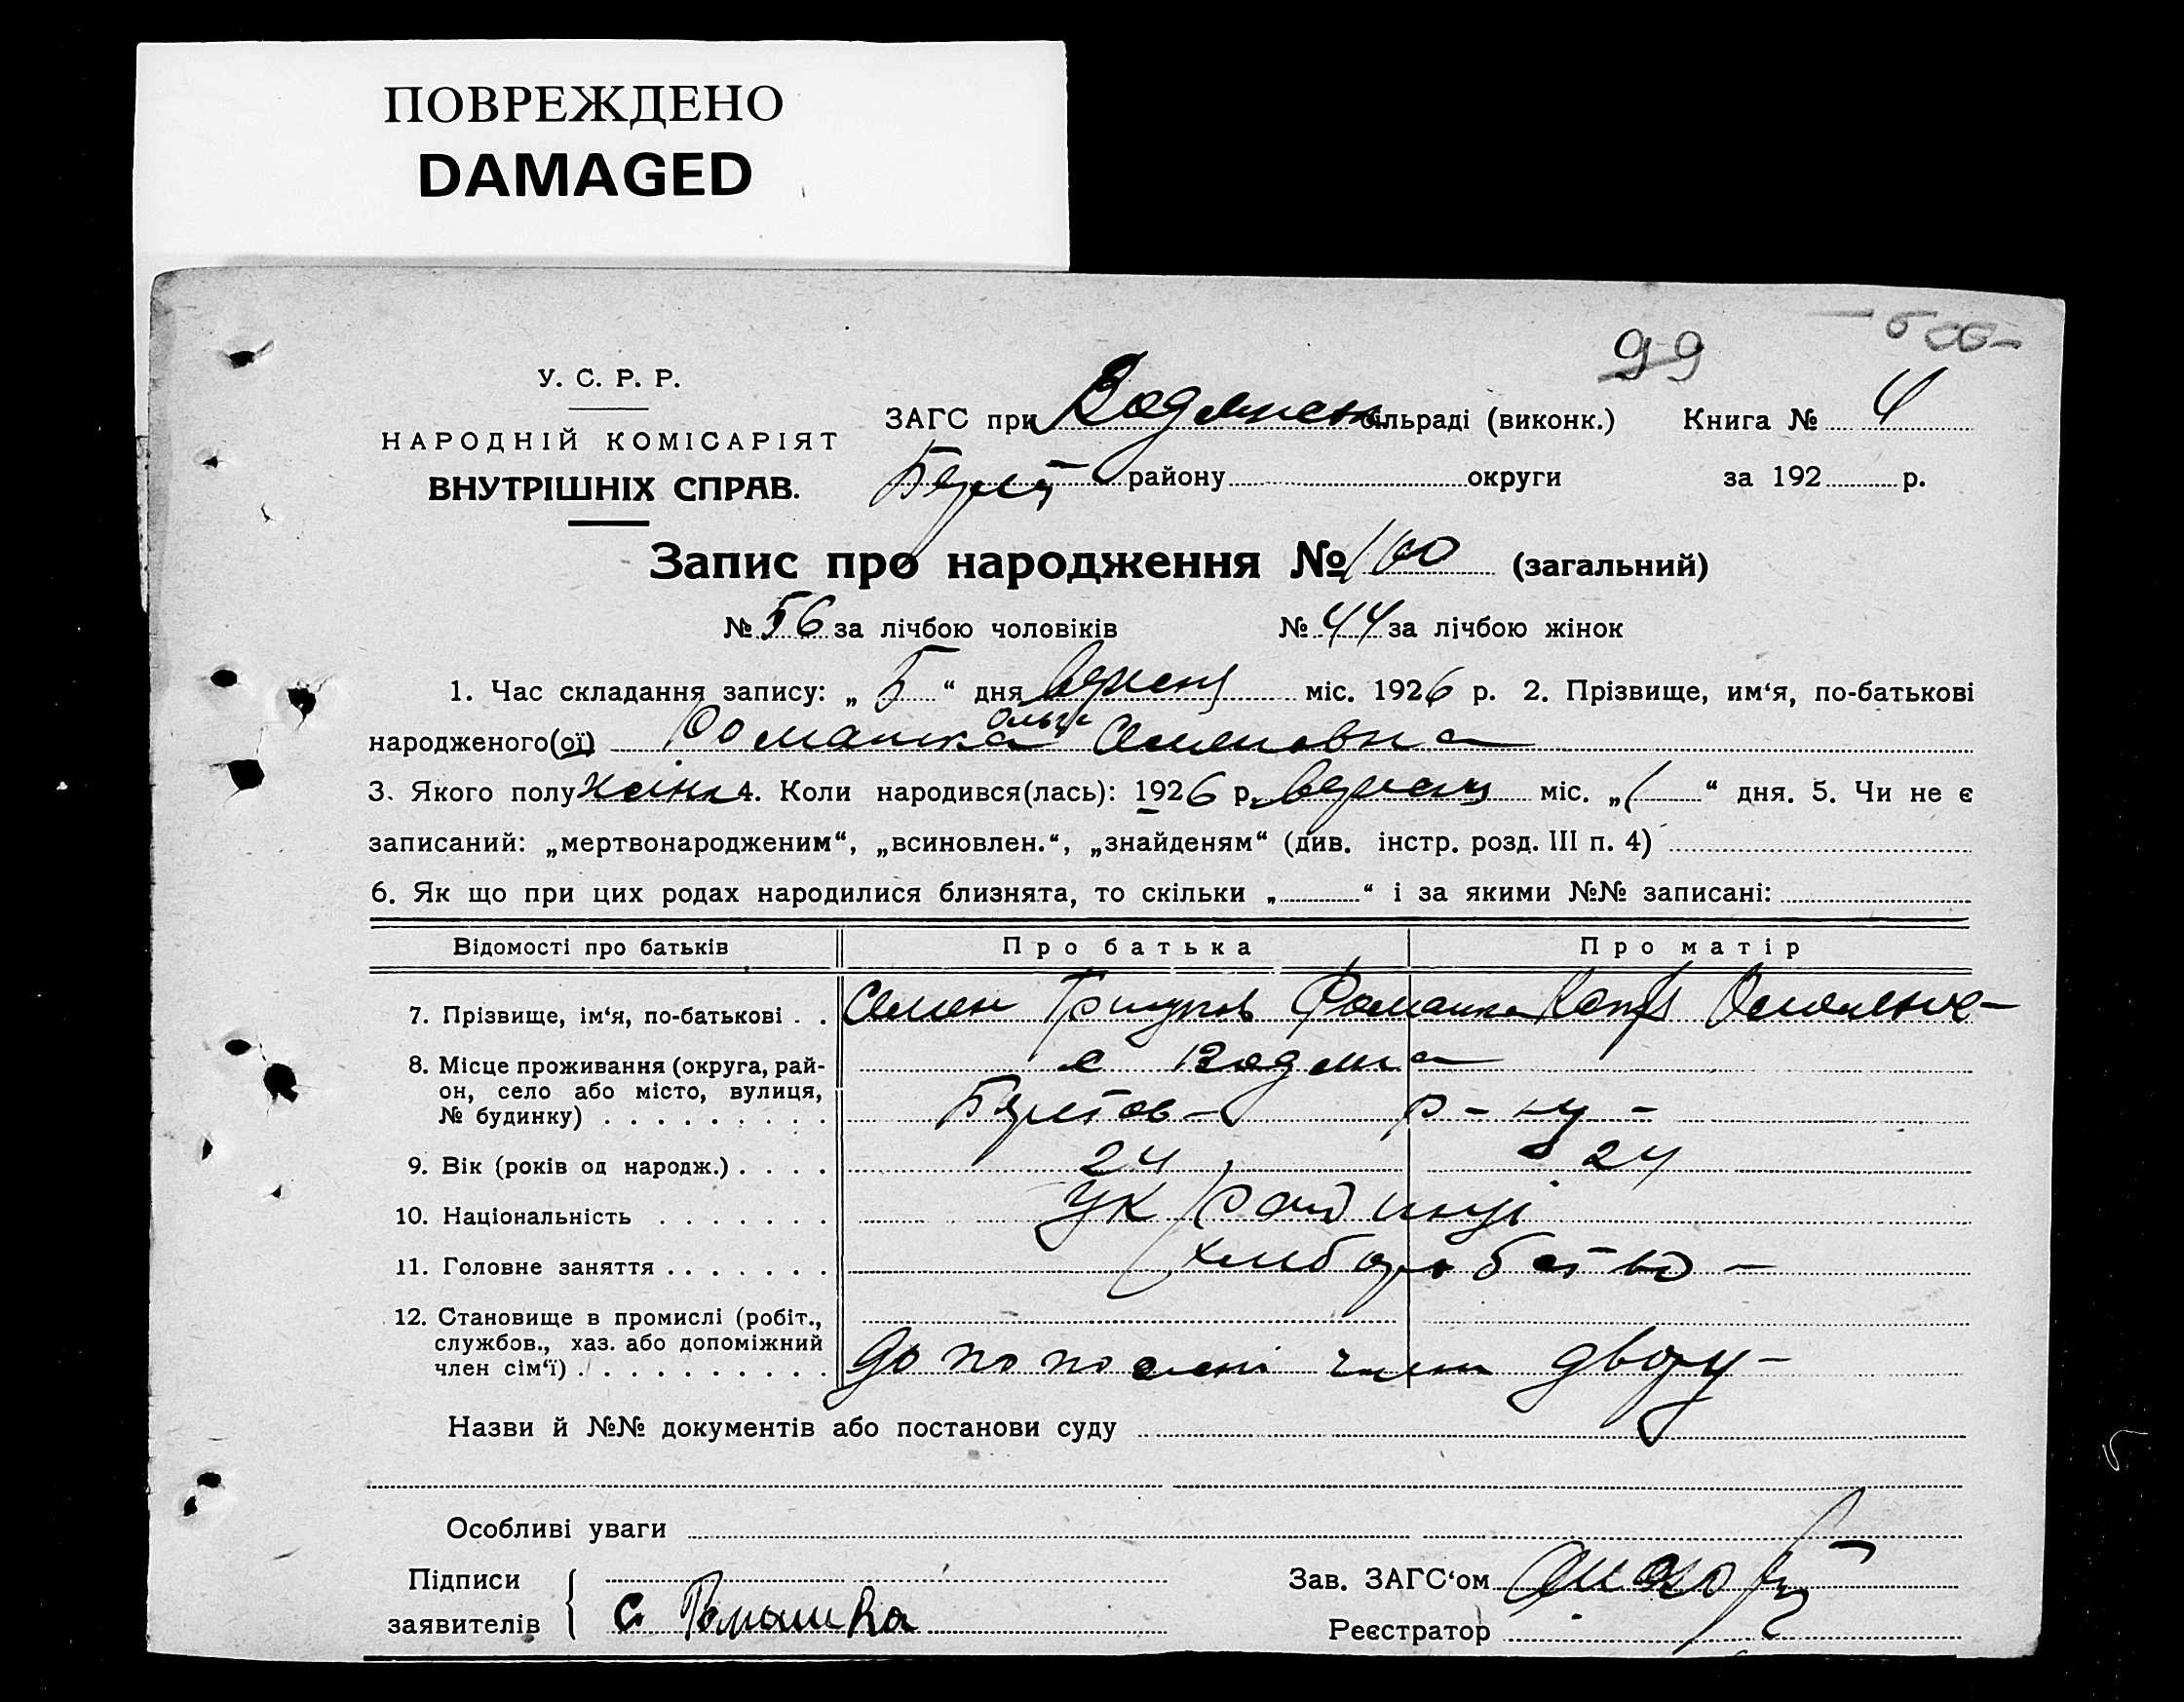 ПОВРЕЖДЕНО
DAMAGED
99
У. С. Р. Р.
НАРОДНІЙ КОМІСАРІЯТ
ВНУТРІШНІХ СПРАВ.
ЗАГС при Водянск сільраді (виконк.) Книга № 4
району округи за 192 р.
Запис про народження № 100 (загальний)
№ 56 за лічбою чоловіків № 44 за лічбою жінок
1. Час складання запису: „ 5 “ дня вересн міс. 1926 р. 2. Прізвище, им‘я, по-батькові
Ольга
народженого(ої) Ромашка Семеновна
3. Якого полу жіноч 4. Коли народився(лась): 1926 р. вересня міс. „ 1 “ дня. 5. Чи не є
записаний: „мертвонародженим“, „всиновлен.“, „знайденям“ (див. інстр. розд. III п. 4)
6. Як що при цих родах народилися близнята, то скільки „ “ і за якими №№ записані:
Відомості про батьків Про батька Про матір
7. Прізвище, ім‘я, по-батькові . . Семен Григоров Ромашка
8. Місце проживання (округа, рай- с Водяна
он, село або місто, вулиця,
№ будинку) . . . . . . . . . р-ну -
9. Вік (років од народж.) . . . . 24 24
10. Національність . . . . . . . Українці
11. Головне заняття . . . . . . . хлиборобство -
12. Становище в промислі (робіт.,
службов., хаз. або допоміжний
член сім‘ї) . . . . . . . . . . члени двору -
Назви й №№ документів або постанови суду
Особливі уваги
Підписи Зав. ЗАГС‘ом
заявителів С Ромашка Реєстратор